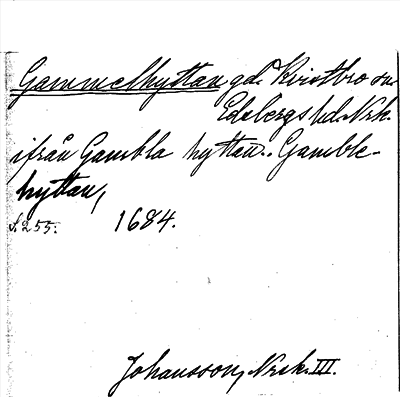 Gammelhyttan gd. Kvistbro sn.
Edsbergs hd. Nrk.
ifrån Gambla hyttan.. Gamble-
hyttan,
s. 255. 1684.
Johansson, Nrk. III.